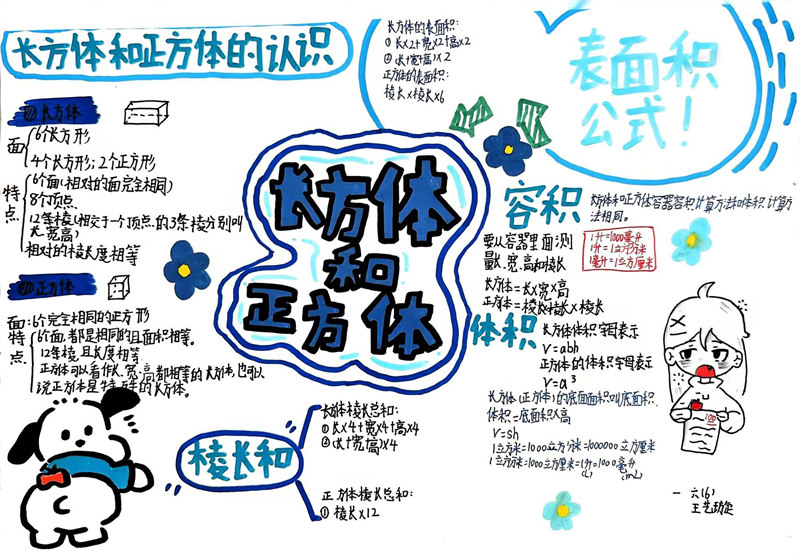 长方体和正方体的认识
长方体
面
6个长方形
4个长方形；2个正方形
特点
6个面（相对的面完全相同）
8个顶点
12条棱（相交于一个顶点的3条棱分别叫
长宽高）
相对的棱长度相等
正方体
面：6个完全相同的正方形
特点
6个面，都是相同的且面积相等。
12条棱，且长度相等
正方体可以看作长、宽、高都相等的长方体，也可以
说正方体是特殊的长方体。
长方体
和
正方体
棱长和
长方体棱长总和：
①长×4+宽×4+高×4
②(长+宽+高)×4
正方体棱长总和：
①棱长×12
长方体的表面积：
正方体的表面积：
棱长×棱长×6
表面积
公式！
容积
长方体和正方体容器容积计算方法和体积计算方
法相同。
要从容器里面测
量长、宽、高和棱长
1升=1000毫升
1升=1立方分米
1毫升=1立方厘米
长方体=长×宽×高
正方体=棱长×棱长×棱长
体积
长方体体积字母表示
V=abh
正方体的体积字母表示
V=a³
长方体（正方体）的底面面积叫底面积.
体积=底面积×高
V=sh
1立方米=1000立方分米=1000000立方厘米
1立方分米=1000立方厘米=1升=1000毫升
(L) (mL)
100
六(6)